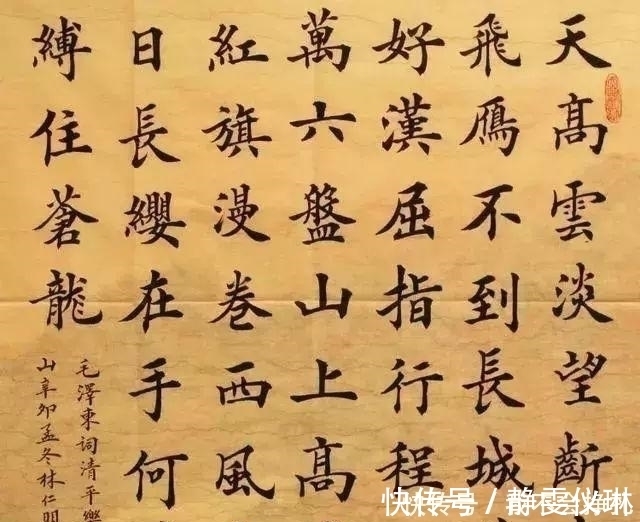 天高雲淡望斷
飛鴈不到長城
好漢屈指行程
萬六盤山上高
紅旗漫卷西風
日長纓在手何
縛住蒼龍
毛澤東詞清平樂
山辛卯孟冬林仁明
快传号 / 静雯仪琳